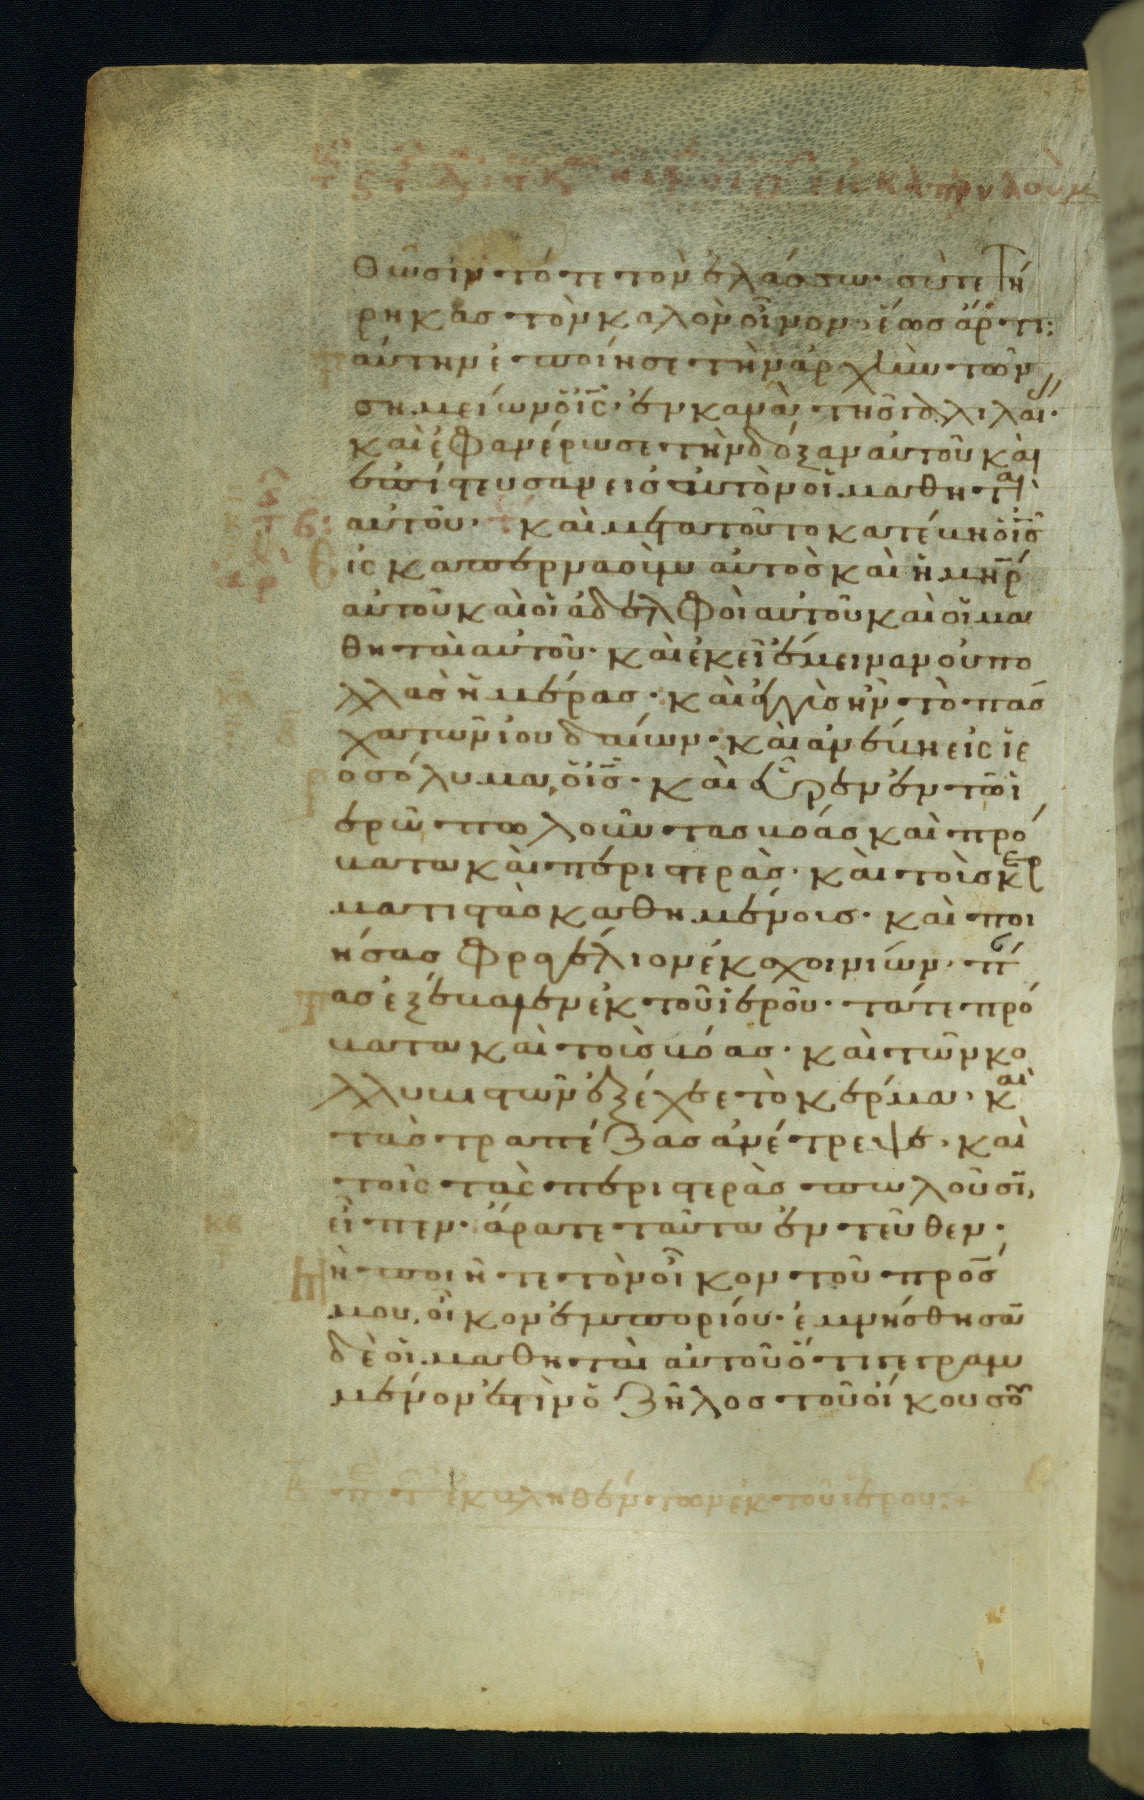 θῶσιν τότε τὸν ἐλάσσω· σὺ τετή
ρηκας τὸν καλὸν οἶνον ἕως ἄρτι:
αύτην ἐποίησε τὴν ἀρχὴν τῶν
σημείων ὁ ις̅· ἐν κανᾶ τῆς γαλιλαί·
καὶ ἐφανέρωσε τὴν δόξαν αὐτοῦ καὶ
ἐπίστευσαν εἰς αὐτὸν οἱ μαθηταὶ
αὐτοῦ· καὶ μετὰ τοῦτο κατέβη ὁ ις̅
εις καπερναοὺμ αὐτὸς καὶ ἡ μηρ̅
αὐτοῦ καὶ οἱ ἀδελφοὶ αὐτοῦ καὶ οἱ μα
θηταὶ αὐτοῦ· καὶ ἐκεῖ ἔμειναν οὐ πο
λλὰς ἡμέρας· καὶ ἐγγὺς ἦν τὸ πάσ
χα τῶν ἰουδαίων· καὶ ἀνέβη εἰς ἱε
ροσόλυμα, ὁ ις̅· καὶ εὗρεν ἐν τῶ ἱ
ερῶ πωλοῦντας βόας καὶ πρό
βατα καὶ περιστερὰς· καὶ τοὺς κερ
ματιστὰς καθημένους· καὶ ποι
ήσας φραγέλιον ἐκ σχοινίων· πάν
τας ἐξέβαλεν ἐκ τοῦ ἱεροῦ· τά τε πρό
βατα καὶ τοὺς βόας· καὶ τῶν κο
λλυβιστῶν ἐξέχεε τὸ κέρμα· καὶ
τὰς τραπέζας ἀνέτρεψε· καὶ
τοῖς τὰς περιστερὰς πωλοῦσι,
εἶπεν· ἄρατε ταῦτα ἐντεῦθεν·
μὴ ποιῆτε τὸν οἶκον τοῦ πρς̅
μου, οἶκον ἐμπορίου· ἐμνήσθησαν
δὲ οἱ μαθηταὶ αὐτοῦ ὅτι γεγραμ
μένον ἐστὶν ὁ ζῆλος τοῦ οἴκου σου
ἐκβληθέντων ἐκ τοῦ ἱεροῦ:+